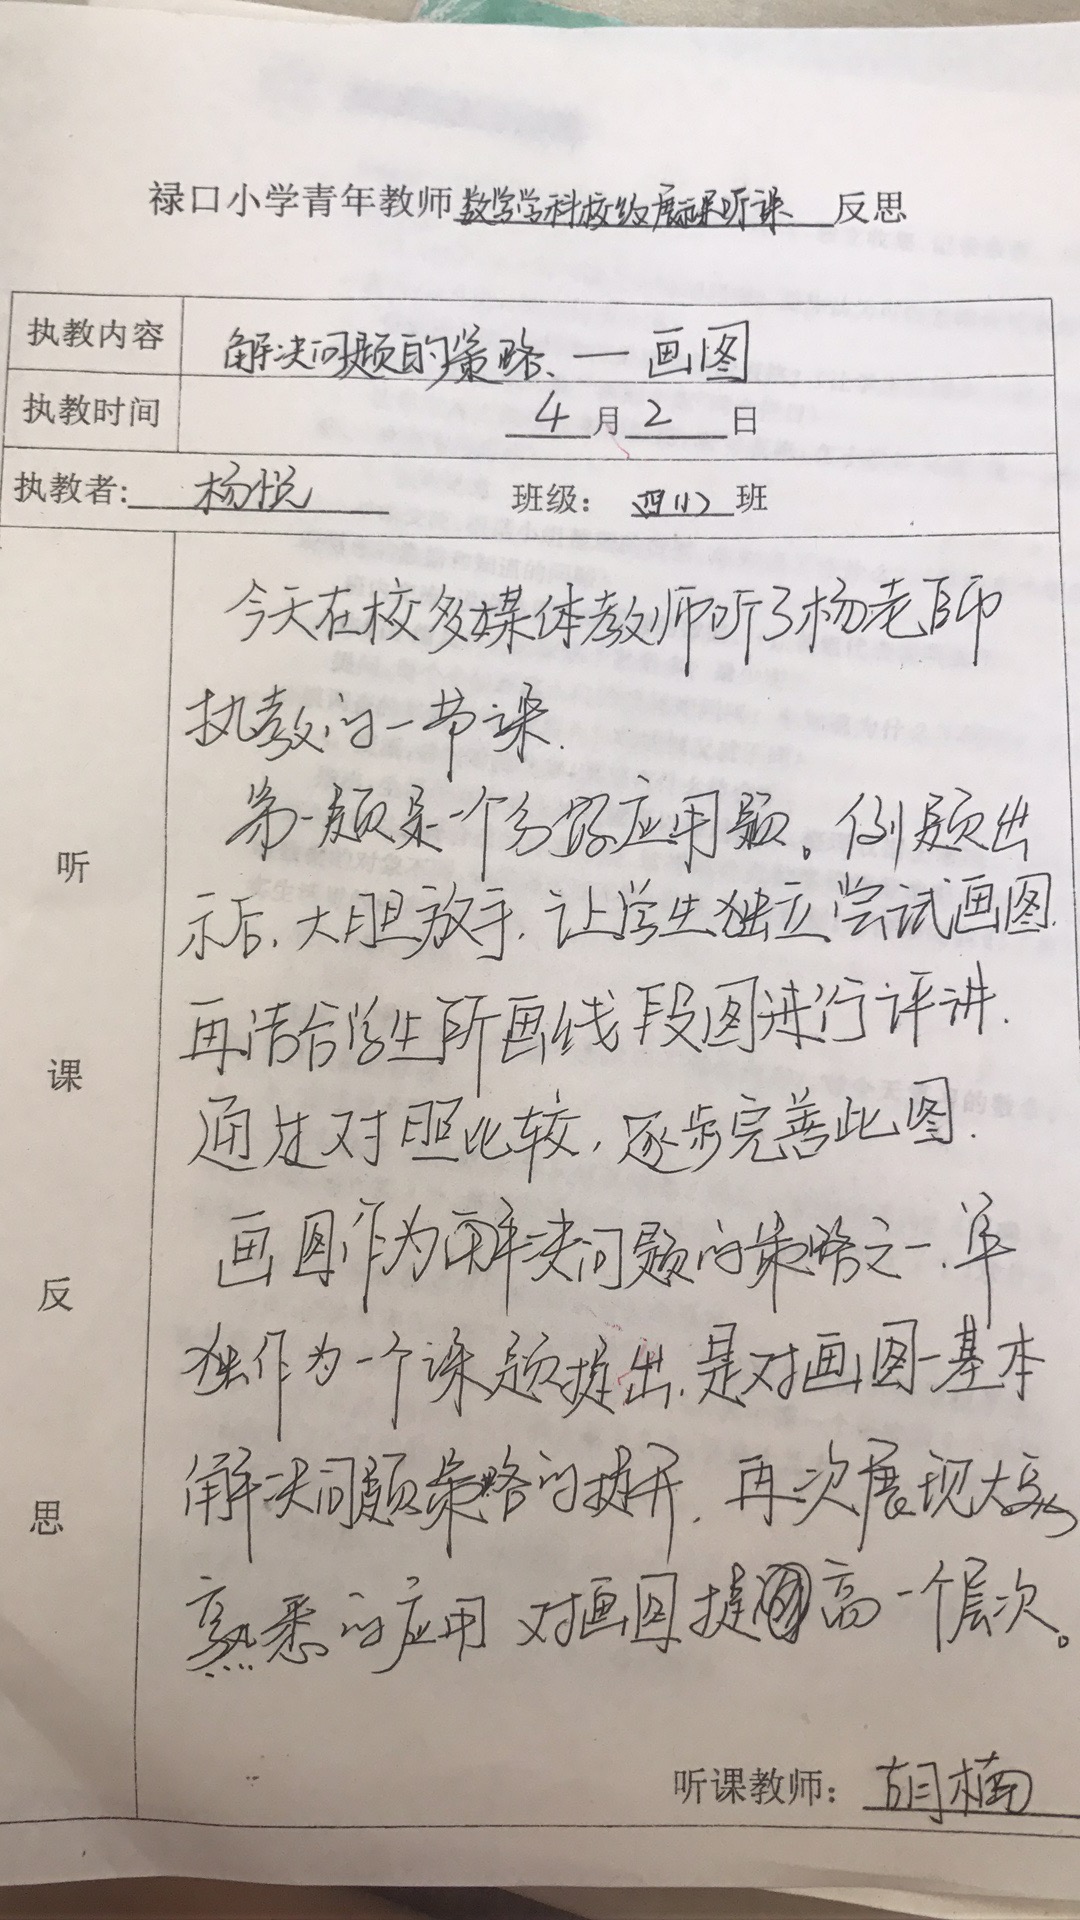 禄口小学青年教师数学学科校级展示课听课反思
执教内容 解决问题的策略——画图
执教时间 4月2日
执教者:杨悦 班级:四(1)班
听课反思
今天在校多媒体教师听了杨老师
执教的一节课.
第一题是一个应用题。例题出
示后,大胆放手,让学生独立尝试画图.
再结合学生所画线段图进行评讲.
通过对照比较,逐步完善此图.
画图作为解决问题的策略之一,单
独作为一个课题提出,是对画图一基本
解决问题策略的提升,再次展现大家
熟悉的应用 对画图提高一个层次。
听课教师:胡楠